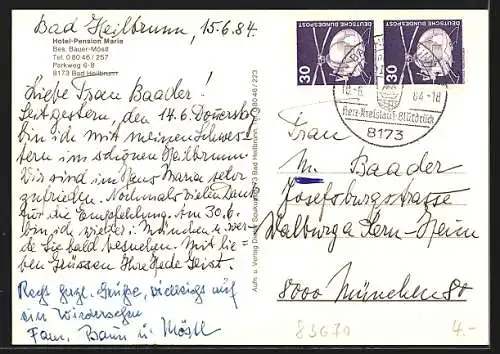 Bad Heilbrunn, 15.6.84.
Hotel-Pension Marie
Bes. Bauer-Mösll
Tel. 0 80 46 / 257
Parkweg 6-8
8173 Bad Heilbrunn
Liebe Frau Baader!
Seit gestern, den 14.6. Donerstag
bin ich mit meinen Schwes-
tern im schönen Heilbrunn.
Wir sind im Haus Maria sehr
zufrieden. Nochmals vielen Dank
für die Empfehlung. Am 30.6.
bin ich wieder i. München u. wer-
de Sie bald besuchen. Mit lie-
ben Grüssen Ihre Hede Geist.
Recht Grüße, vielleicht auf
ein Wiedersehen
Fam. Baur u. Mösll
Aufn. u. Verlag 8173 Bad Heilbrunn, 0 80 46 / 223
DEUTSCHE BUNDESPOST
30
DEUTSCHE BUNDESPOST
30
84-18
Herz-Kreislauf-Blutdruck
8173
Frau
M. Baader
Josefsburgstrasse
Walburga Stern-Heim
8000 München 80
83670
4.-